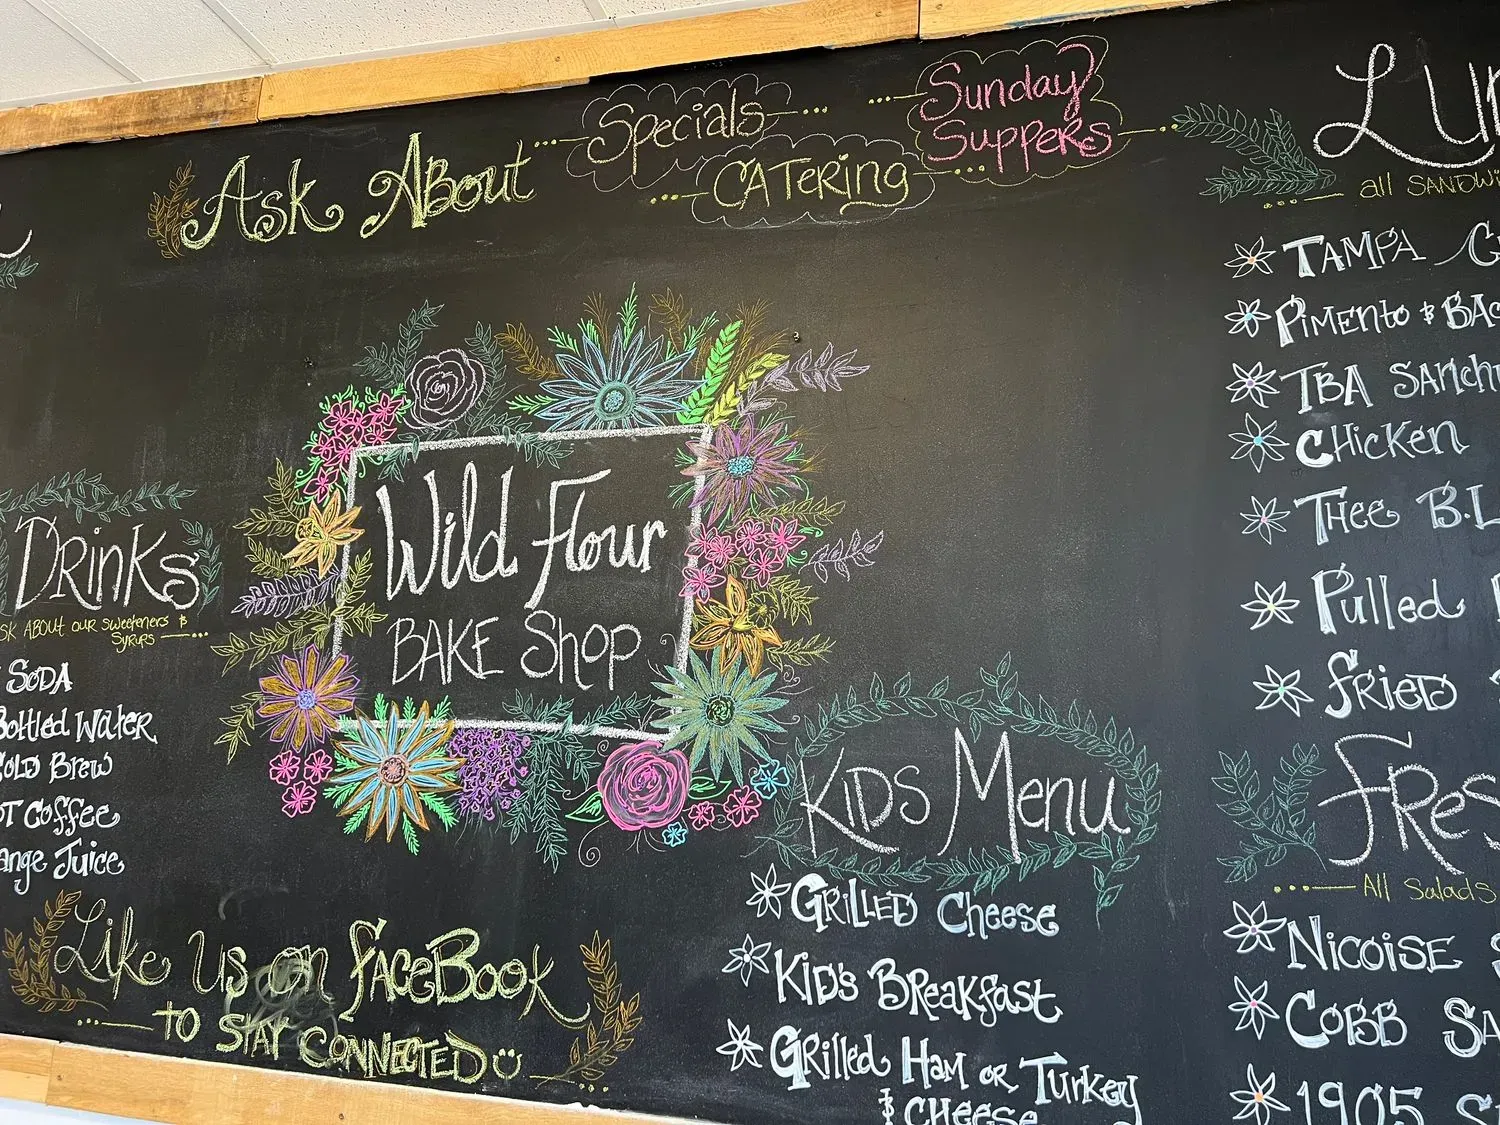 Ask About
Specials
CATering
Sunday
Suppers
Wild Flour
BAKE Shop
DRinKs
ABOUT our sweeteners &
SYRUPS
SODA
Bottled Water
Cold Brew
Coffee
Juice
Like Us on faceBook
to STAY CONNECTED
KiDS Menu
GRiLLED Cheese
KiD's BReakfast
GRilled Ham or Turkey
& CHeese
all
TAMPA
PiMento &
TBA
CHicKen
THee
Pulled
FRieD
All Salads
NicoiSE
COBB
1905